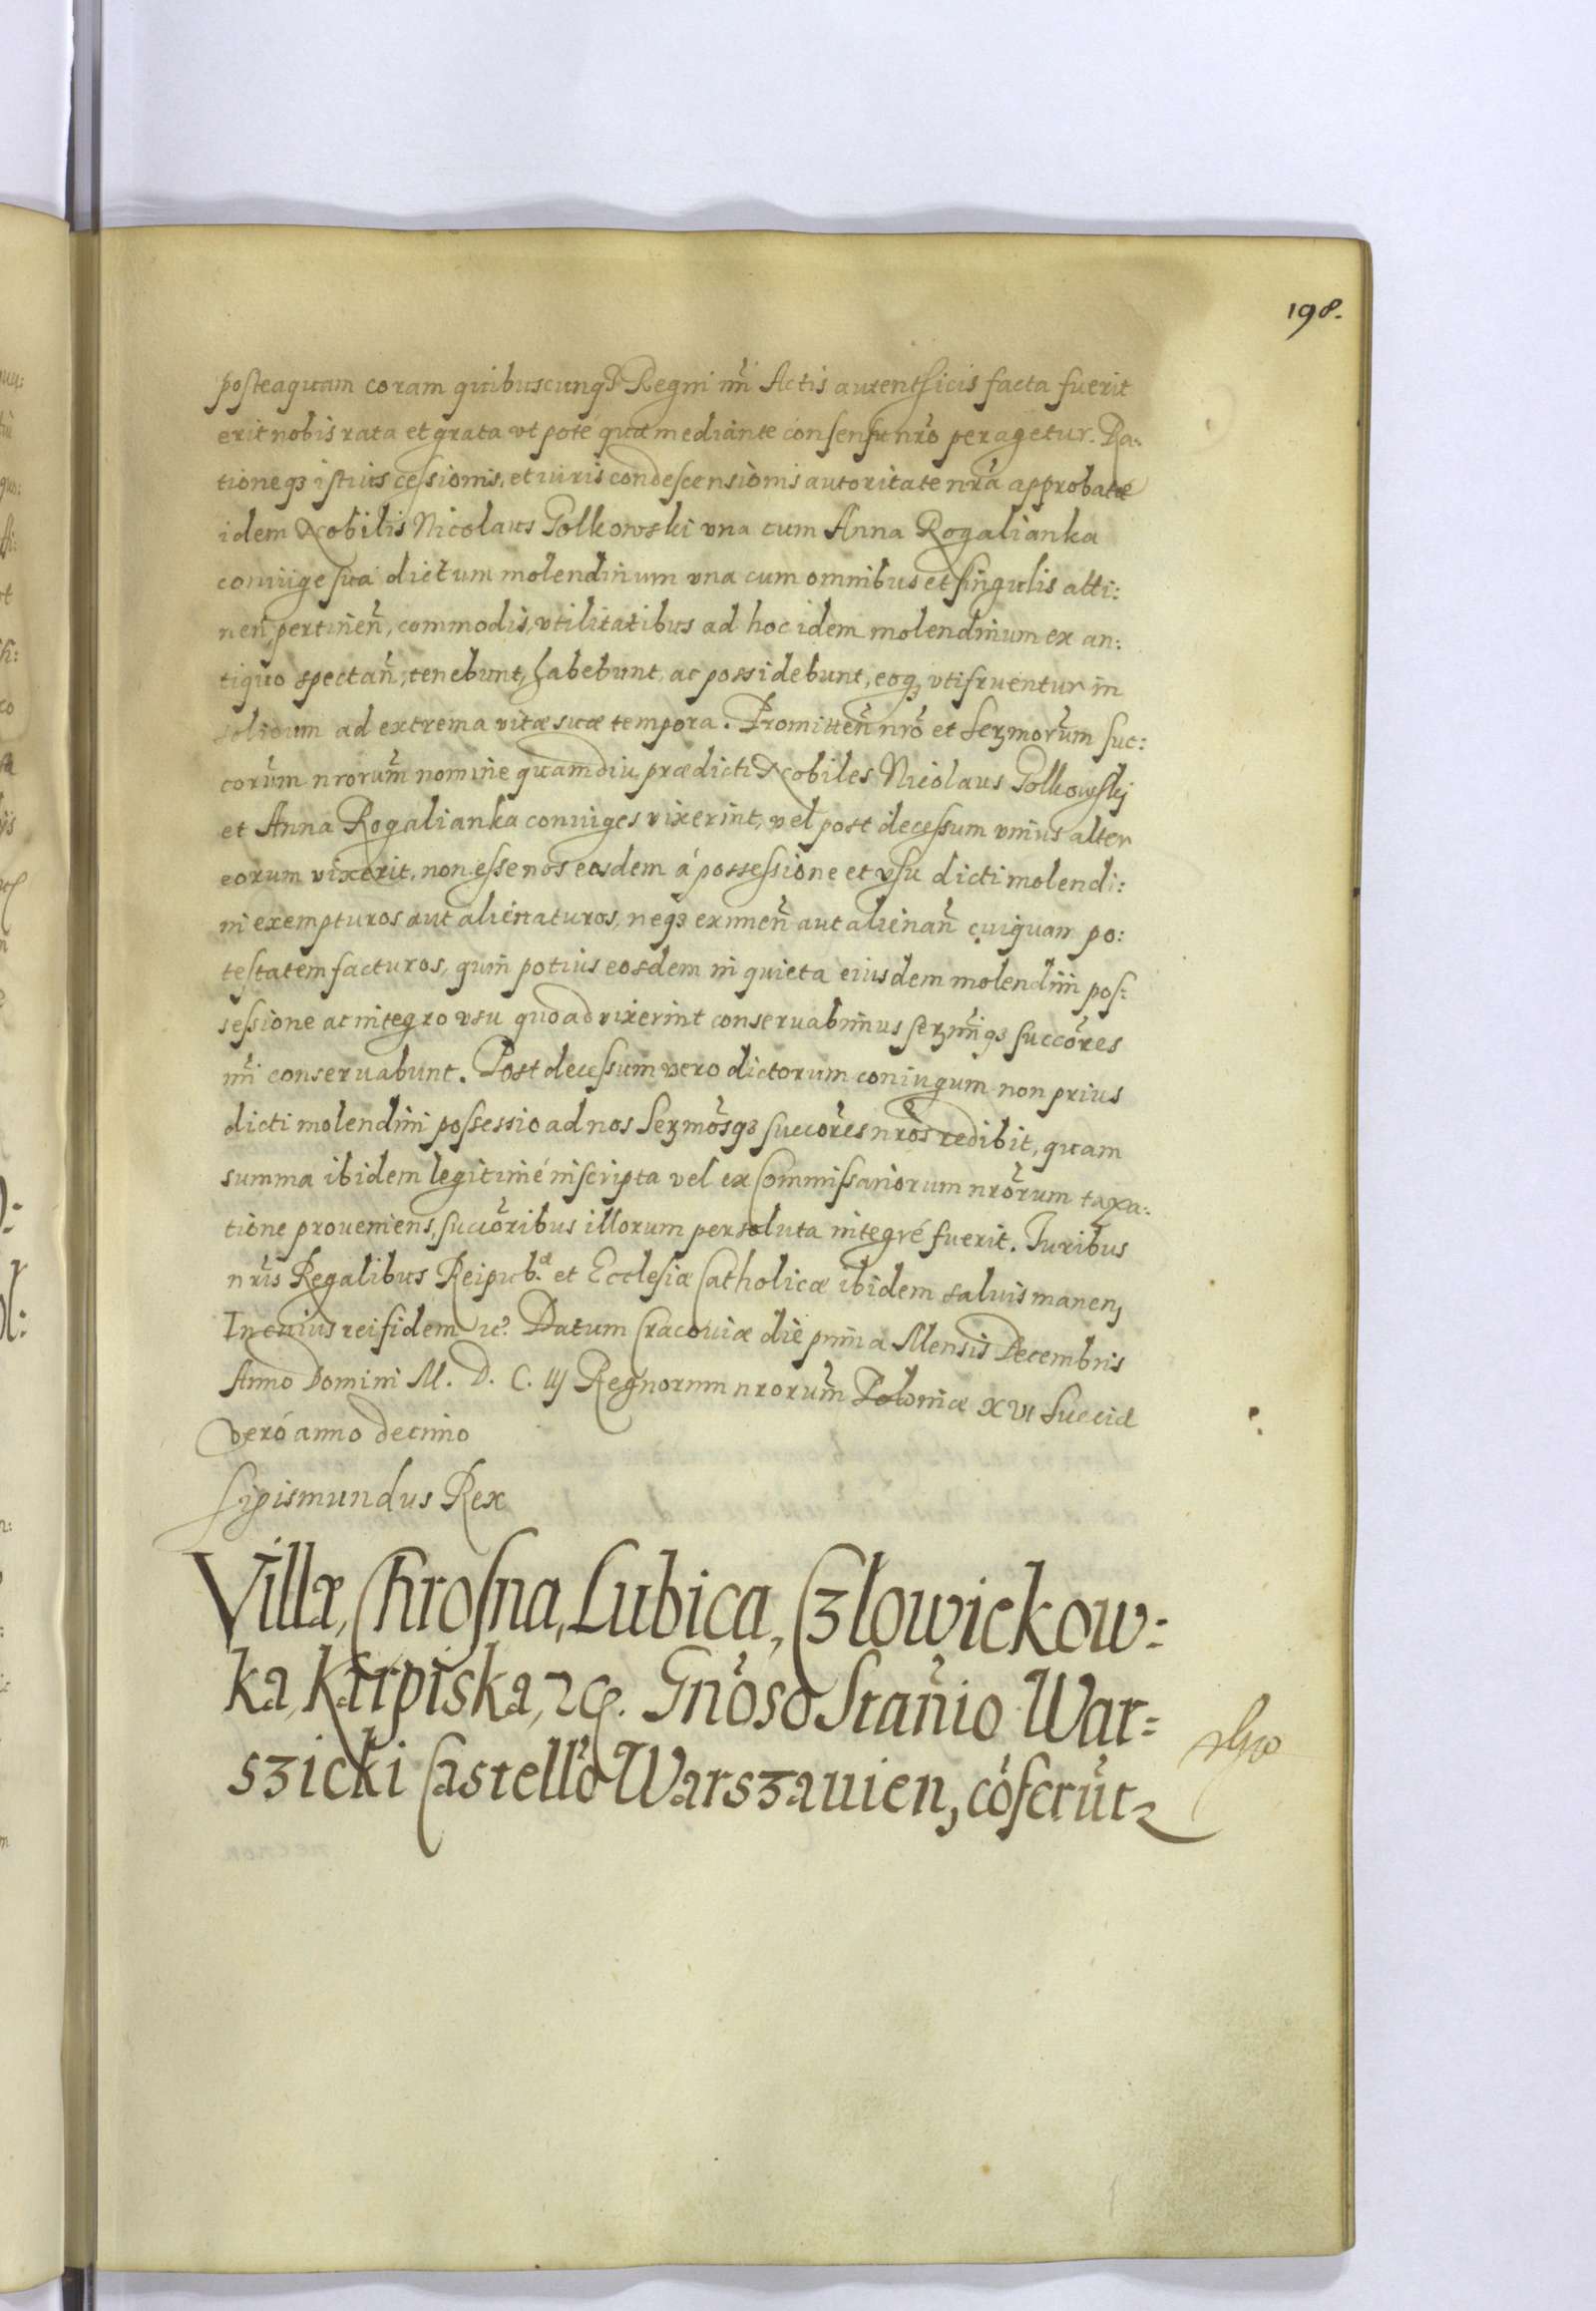 198.
posteaquam coram quibuscunqꝫ Regni nr̃i Actis autenthicis facta fuerit
erit nobis rata et grata vt pote quæ mediante consensu nr̃o peragetur. Ra:
tioneqꝫ istius cessionis, et iuris condescensionis autoritate nr̃a approbatæ
idem Nobilis Nicolaus Golkowski vna cum Anna Rogalianka
coniuge sua dictum molendinum vna cum omnibus et singulis atti:
nen̄ pertinen̄, commodis, vtilitatibus ad hoc idem molendinum ex an:
tiquo spectan̄, tenebunt, habebunt, ac possidebunt, eoqꝫ vtifruentur in
solidum ad extrema vitæ suæ tempora. Promitten̄ nr̃o et Serꝫmorum̃ suc:
corum̃ nrorum̃ nomine quamdiu prædicti Nobiles Nicolaus Golkowskj
et Anna Rogalianka coniuges vixerint, vel post decessum vnius alter
eorum vixerit, non esse nos eosdem á possessione et vsu dicti molendi:
ni exempturos aut alienaturos, neqꝫ eximen̄ aut alienan̄ cuiquam po:
testatem facturos, quin potius eosdem in quieta eiusdem molendini pos:
sessione ac integro vsu quoad vixerint conseruabimus serꝫmiqꝫ succõres
nr̃i conseruabunt. Post decessum vero dictorum coniugum non prius
dicti molendini possessio ad nos Serꝫmõsqꝫ succõres nr̃os redibit, quam
summa ibidem legitimé inscripta vel ex Commissariorum nrõrum taxa:
tione proueniens, succõribus illorum persoluta integré fuerit. Iuribus
nr̃is Regalibus Reipub. et Ecclesiæ Catholicæ ibidem saluis manen,
In cuius rei fidem etc. Datum Cracouiæ die prima Mensis Decembris
Anno Domini M. D. C. iij Regnorum nrorum̃ Poloniæ XVI Sueciæ
veró anno decimo
Sigismundus Rex
Villæ, Chrosna, Lubica, Cꝫlowiekow:
ka, Karpiska, etc. Gñoso Stañio War=
sꝫicki Castellõ Warsꝫauien, cõferũt